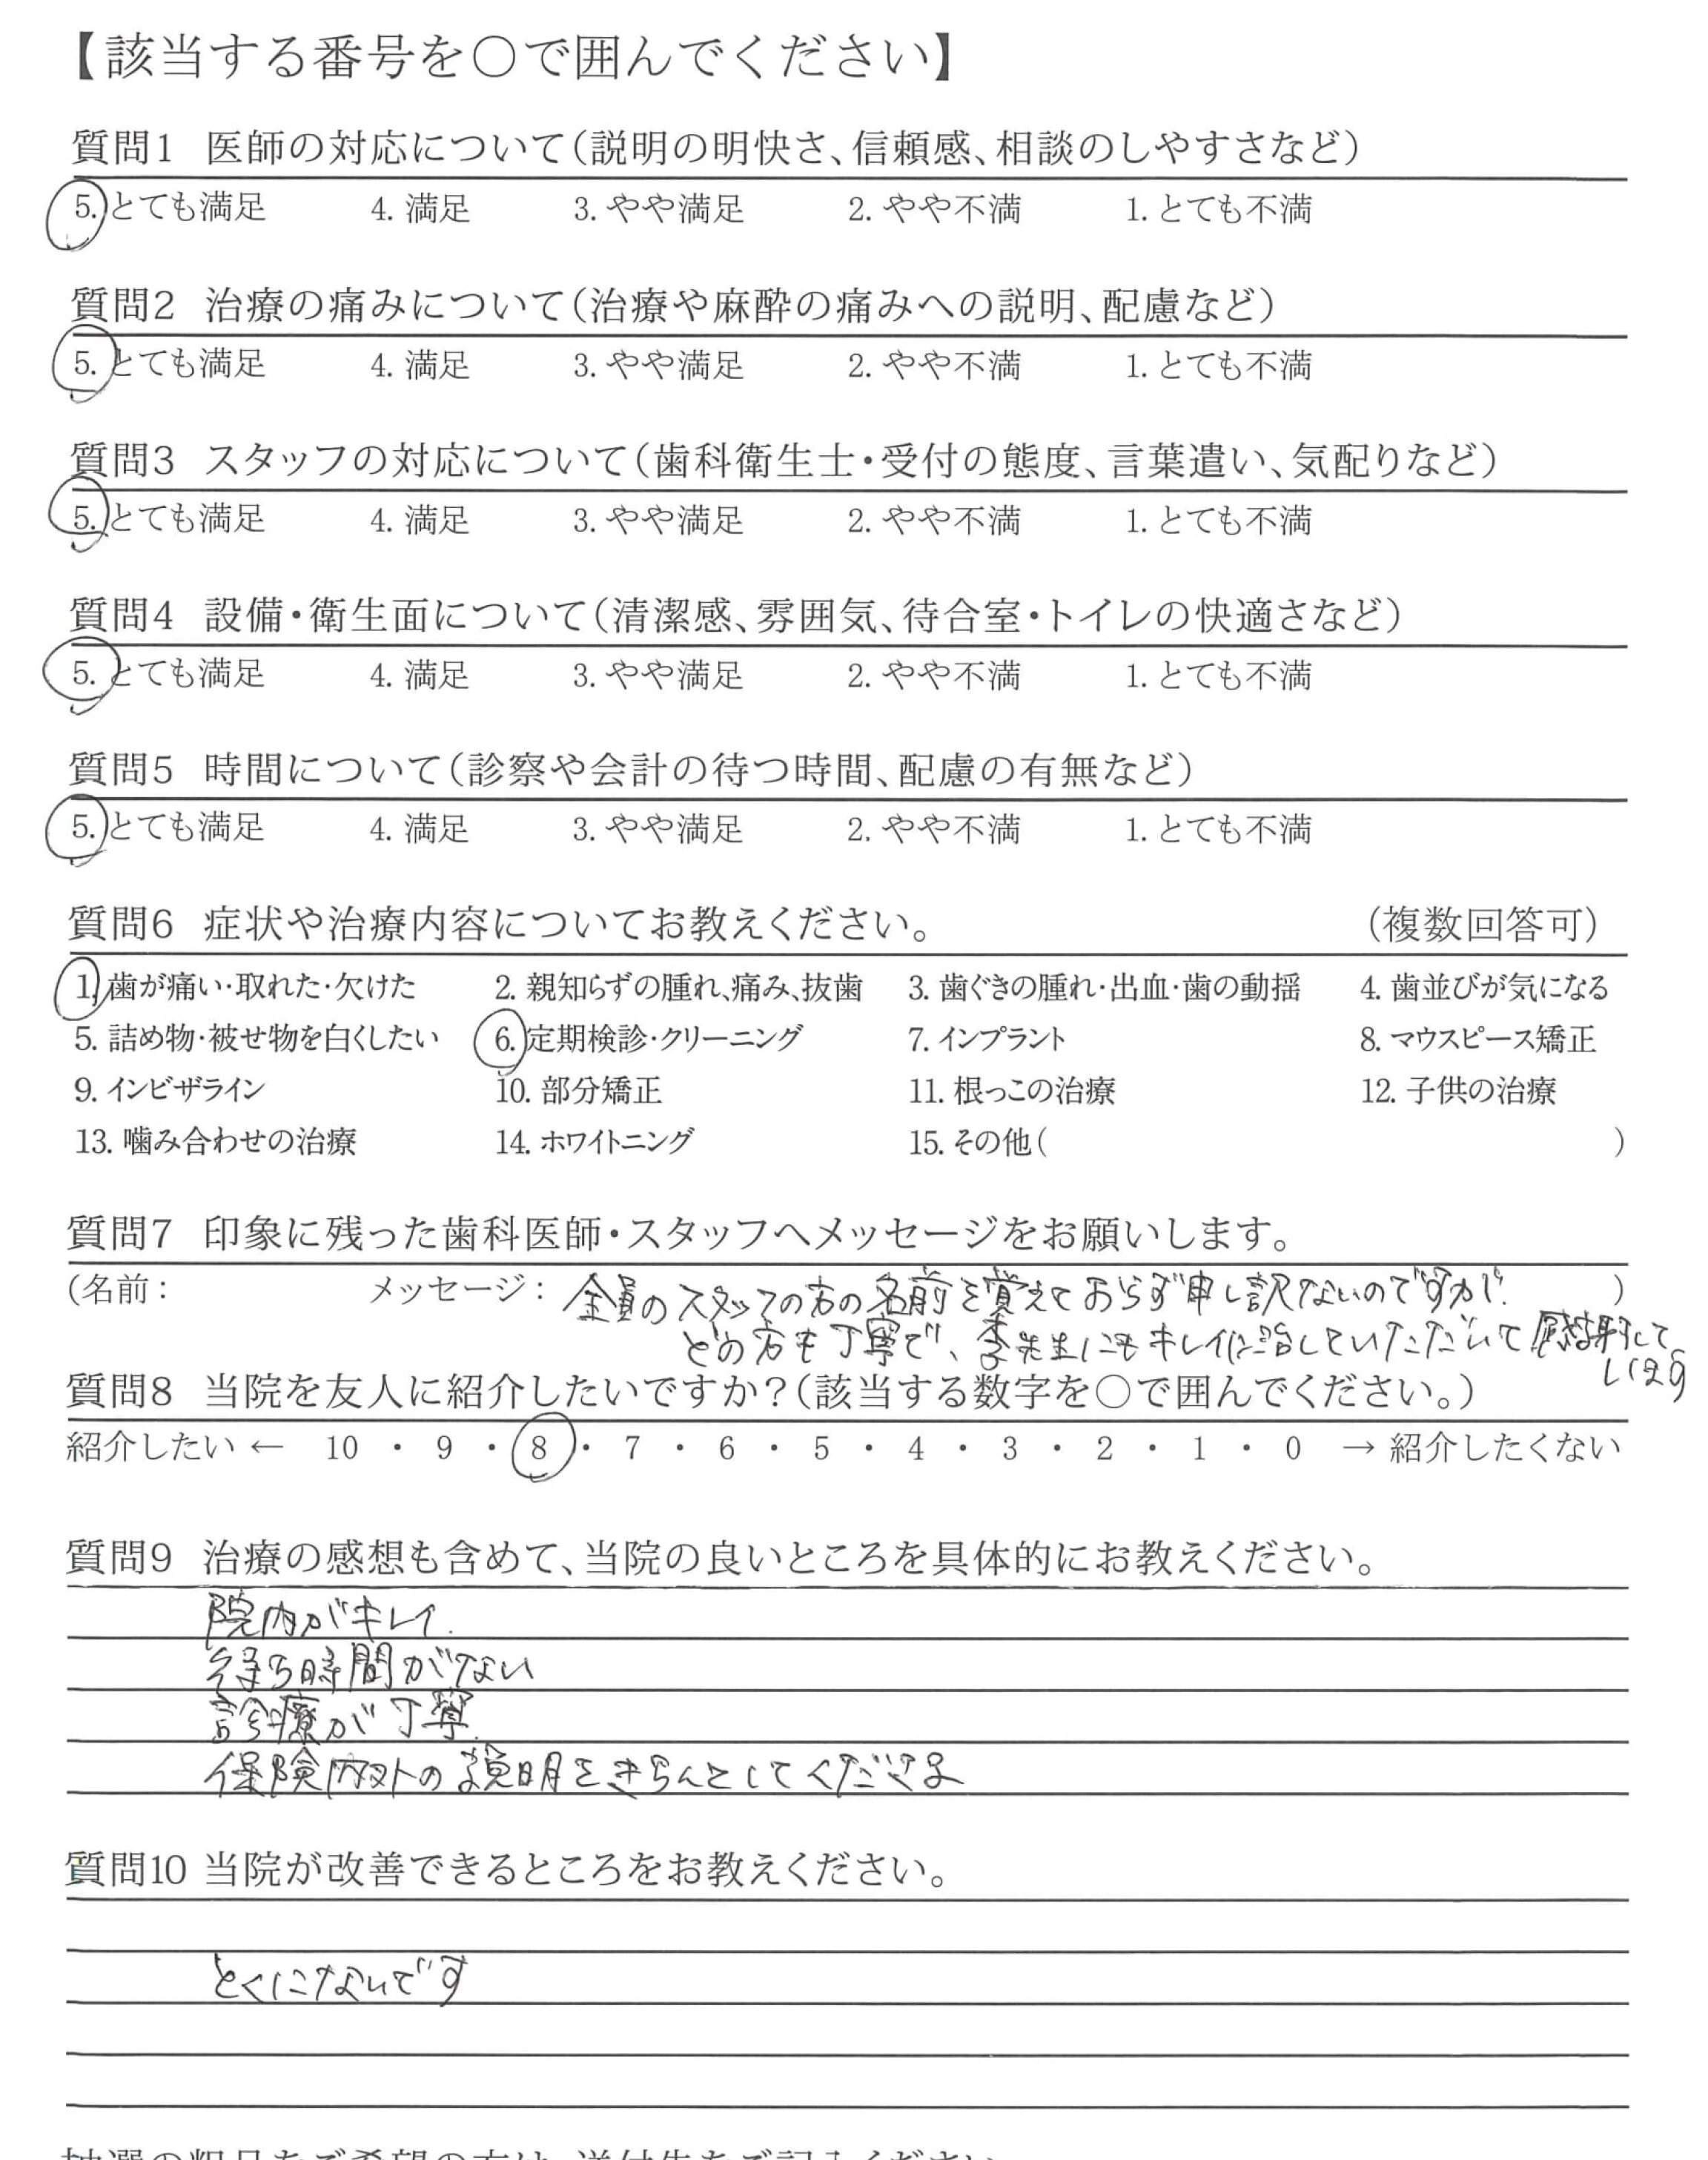 【該当する番号を○で囲んでください】
質問1 医師の対応について（説明の明快さ、信頼感、相談のしやすさなど）
5. とても満足 4. 満足 3. やや満足 2. やや不満 1. とても不満
質問2 治療の痛みについて（治療や麻酔の痛みへの説明、配慮など）
5. とても満足 4. 満足 3. やや満足 2. やや不満 1. とても不満
質問3 スタッフの対応について（歯科衛生士・受付の態度、言葉遣い、気配りなど）
5. とても満足 4. 満足 3. やや満足 2. やや不満 1. とても不満
質問4 設備・衛生面について（清潔感、雰囲気、待合室・トイレの快適さなど）
5. とても満足 4. 満足 3. やや満足 2. やや不満 1. とても不満
質問5 時間について（診察や会計の待つ時間、配慮の有無など）
5. とても満足 4. 満足 3. やや満足 2. やや不満 1. とても不満
質問6 症状や治療内容についてお教えください。 （複数回答可）
1. 歯が痛い・取れた・欠けた 2. 親知らずの腫れ、痛み、抜歯 3. 歯ぐきの腫れ・出血・歯の動揺 4. 歯並びが気になる
5. 詰め物・被せ物を白くしたい 6. 定期検診・クリーニング 7. インプラント 8. マウスピース矯正
9. インビザライン 10. 部分矯正 11. 根っこの治療 12. 子供の治療
13. 噛み合わせの治療 14. ホワイトニング 15. その他（ ）
質問7 印象に残った歯科医師・スタッフへメッセージをお願いします。
（名前： メッセージ： 全員のスタッフの方の名前を覚えておらず申し訳ないのですが. ）
どの方も丁寧で、李先生にもキレイに治していただいて感謝して
います
質問8 当院を友人に紹介したいですか？（該当する数字を○で囲んでください。）
紹介したい ← 10 ・ 9 ・ 8 ・ 7 ・ 6 ・ 5 ・ 4 ・ 3 ・ 2 ・ 1 ・ 0 → 紹介したくない
質問9 治療の感想も含めて、当院の良いところを具体的にお教えください。
院内がキレイ.
待ち時間がない
診療が丁寧.
保険内外の説明をきちんとしてくださる
質問10 当院が改善できるところをお教えください。
とくにないです